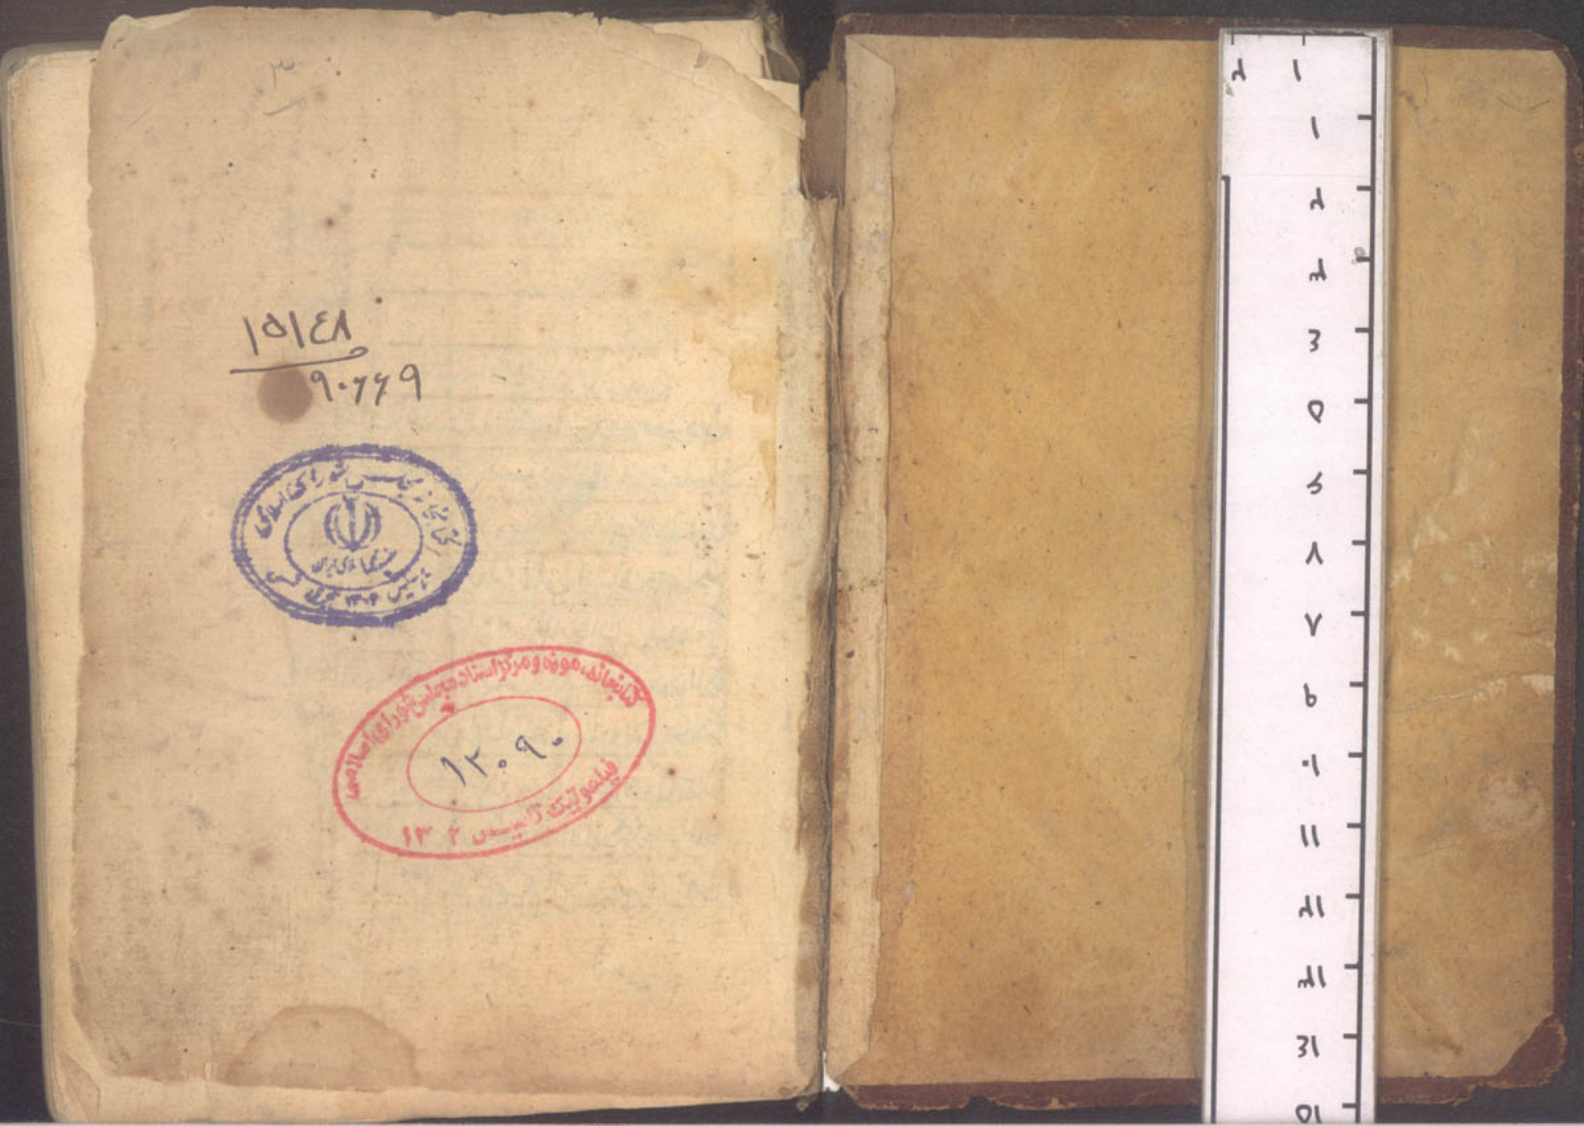 ۳
۱۵۱٤۸
۹۰۶۶۹
کتابخانه مجلس شورای اسلامی
تاسیس ۱۳۰۲
کتابخانه، موزه و مرکز اسناد مجلس شورای اسلامی
۱۲۰۹۰
فیلموتیک تاسیس ۱۳۰۲
۲ ۱
۱
۲
۳
٤
۵
۶
۷
۸
۹
۱۰
۱۱
۱۲
۱۳
۱٤
۱۵